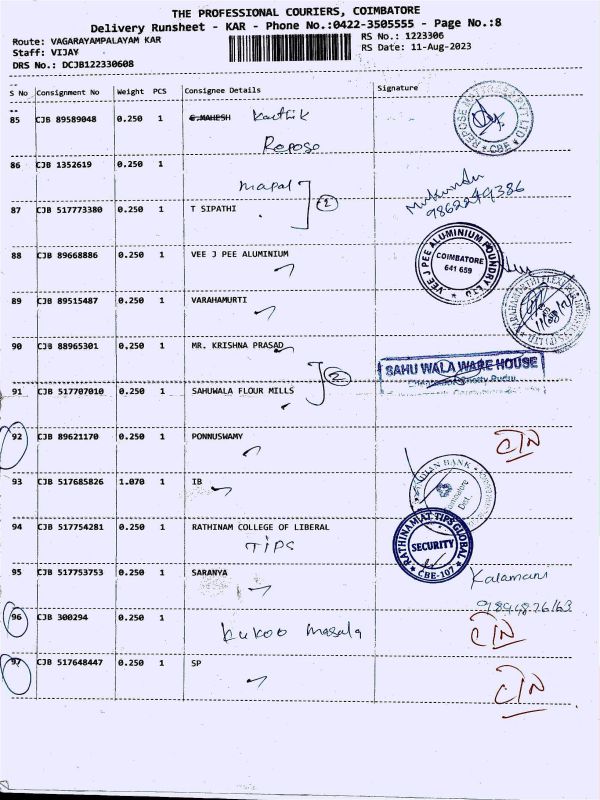 THE PROFESSIONAL COURIERS, COIMBATORE
Delivery Runsheet - KAR - Phone No.:0422-3505555 - Page No.:8
Route: VAGARAYAMPALAYAM KAR
RS No.: 1223306
Staff: VIJAY
RS Date: 11-Aug-2023
DRS No.: DCJB122330608
S No Consignment No Weight PCS Consignee Details Signature
85 CJB 89589048 0.250 1 G.MAHESH Karthik
Repose
REPOSE MATTRESS PVT LTD
CBE
86 CJB 1352619 0.250 1
mapal
2
Mukundu
87 CJB 517773380 0.250 1 T SIPATHI
88 CJB 89668886 0.250 1 VEE J PEE ALUMINIUM
VEE J PEE ALUMINIUM FOUNDRY LTD
COIMBATORE
641 659
89 CJB 89515487 0.250 1 VARAHAMURTI
90 CJB 88965301 0.250 1 MR. KRISHNA PRASAD
2
SAHU WALA WARE HOUSE
91 CJB 517707010 0.250 1 SAHUWALA FLOUR MILLS
92 CJB 89621170 0.250 1 PONNUSWAMY
C/N
93 CJB 517685826 1.070 1 IB
INDIAN BANK
Coimbatore
Dist.
94 CJB 517754281 0.250 1 RATHINAM COLLEGE OF LIBERAL
TIPS
RATHINAM TIPS GLOBAL
SECURITY
CBE-107
95 CJB 517753753 0.250 1 SARANYA
Kalamani
96 CJB 300294 0.250 1
kukoo masala
C/N
97 CJB 517648447 0.250 1 SP
C/N